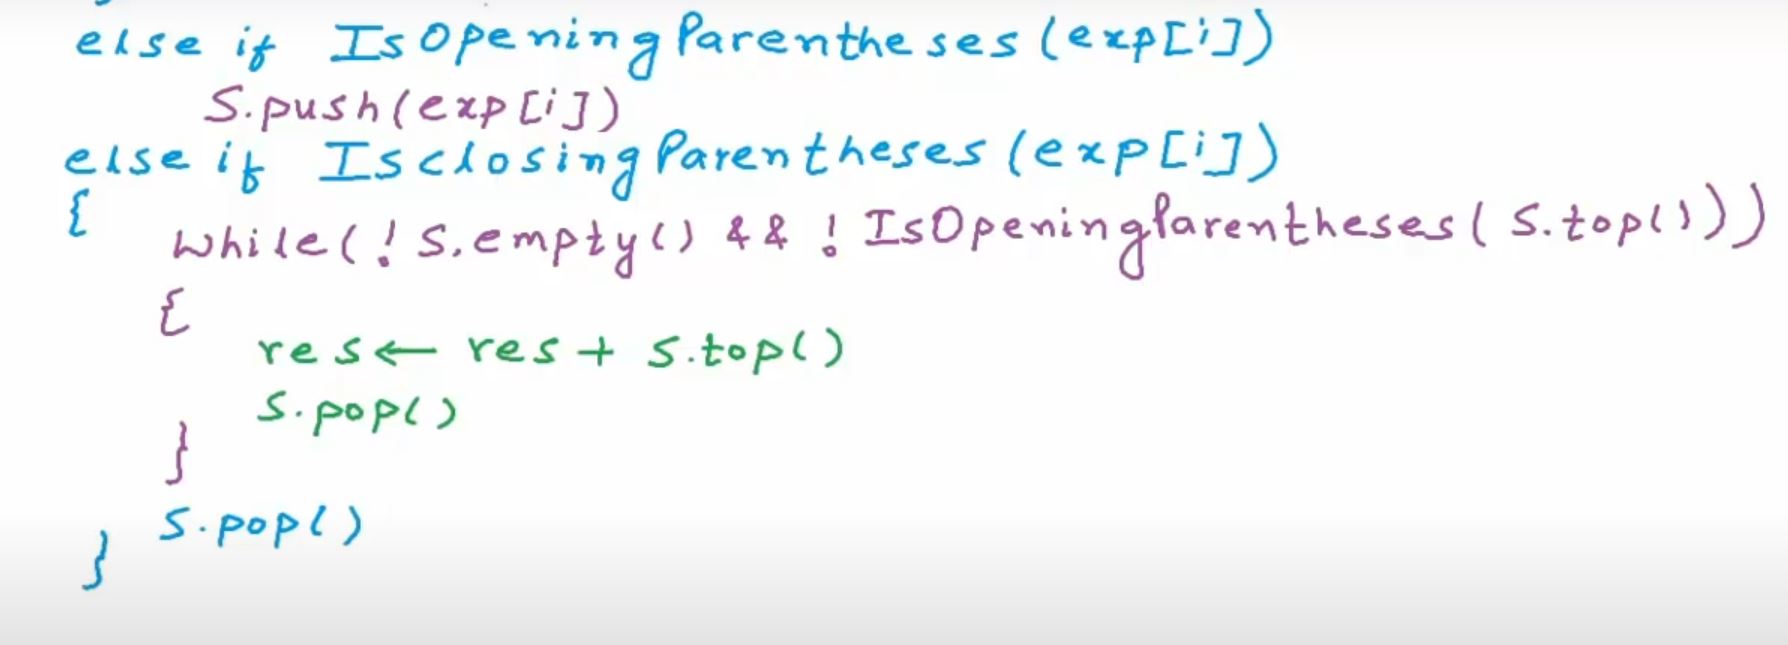 else if IsOpeningParentheses(exp[i])
S.push(exp[i])
else if IsclosingParentheses(exp[i])
{
while(!S.empty() && !IsOpeningParentheses(S.top()))
{
res ← res + S.top()
S.pop()
}
S.pop()
}